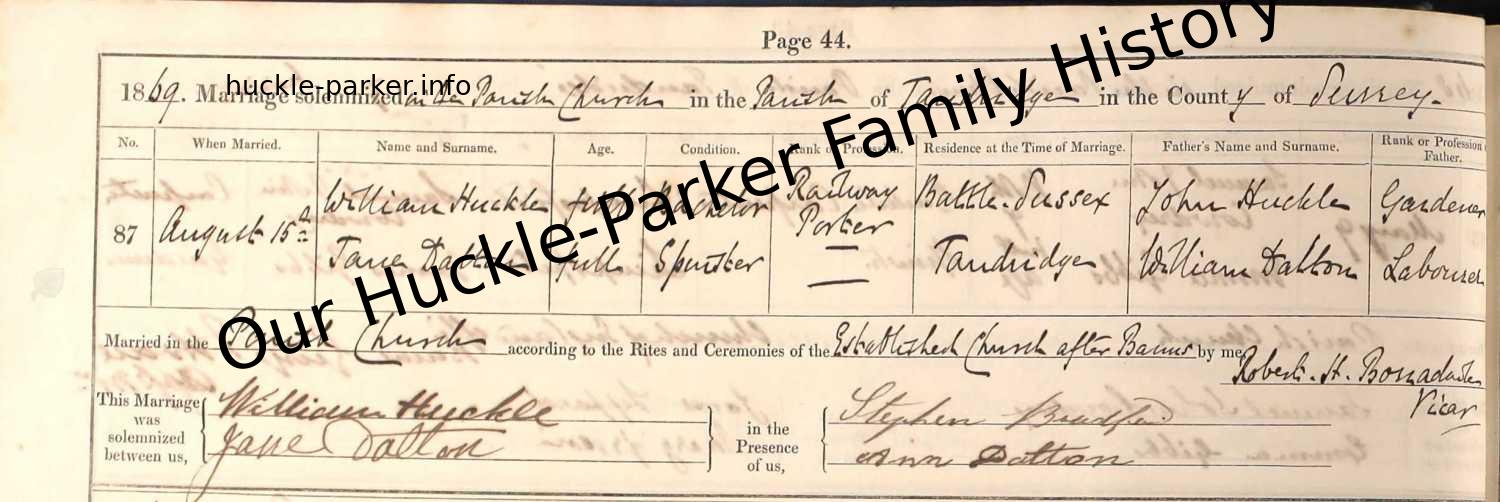 Page 44.
huckle-parker.info
1869. Marriage solemnized in the Parish Church in the Parish of Tandridge in the County of Surrey.
No. When Married. Name and Surname. Age. Condition. Rank or Profession. Residence at the Time of Marriage. Father's Name and Surname. Rank or Profession of Father.
87 August 15th William Huckle full Bachelor Railway Porter Battle. Sussex John Huckle Gardener
Jane Dalton full Spinster — Tandridge William Dalton Labourer
Our Huckle-Parker Family History
Married in the Parish Church according to the Rites and Ceremonies of the Established Church after Banns by me,
Robert. H. Vicar
This Marriage was solemnized between us, William Huckle Jane Dalton in the Presence of us, Stephen Ann Dalton